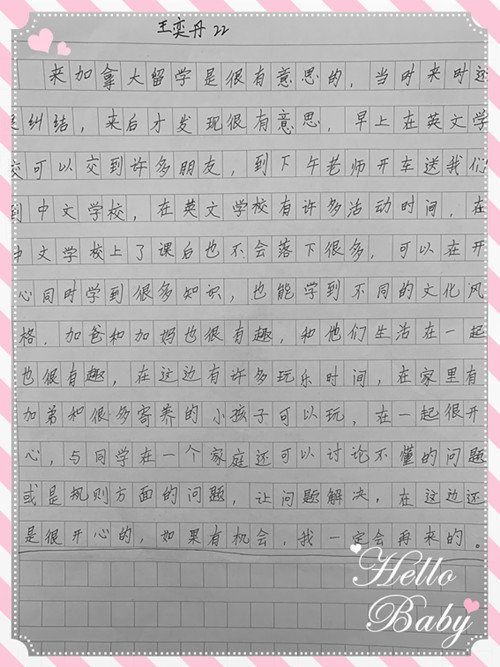 王奕丹 22
来加拿大留学是很有意思的，当时来时还
是纠结，来后才发现很有意思，早上在英文学
校可以交到许多朋友，到下午老师开车送我们
到中文学校，在英文学校有许多活动时间，在
中文学校上了课后也不会落下很多，可以在开
心同时学到很多知识，也能学到不同的文化风
格，加爸和加妈也很有趣，和他们生活在一起
也很有趣，在这边有许多玩乐时间，在家里有
加弟和很多寄养的小孩子可以玩，在一起很开
心，与同学在一个家庭还可以讨论不懂的问题
或是规则方面的问题，让问题解决，在这边还
是很开心的，如果有机会，我一定会再来的。
Hello
Baby